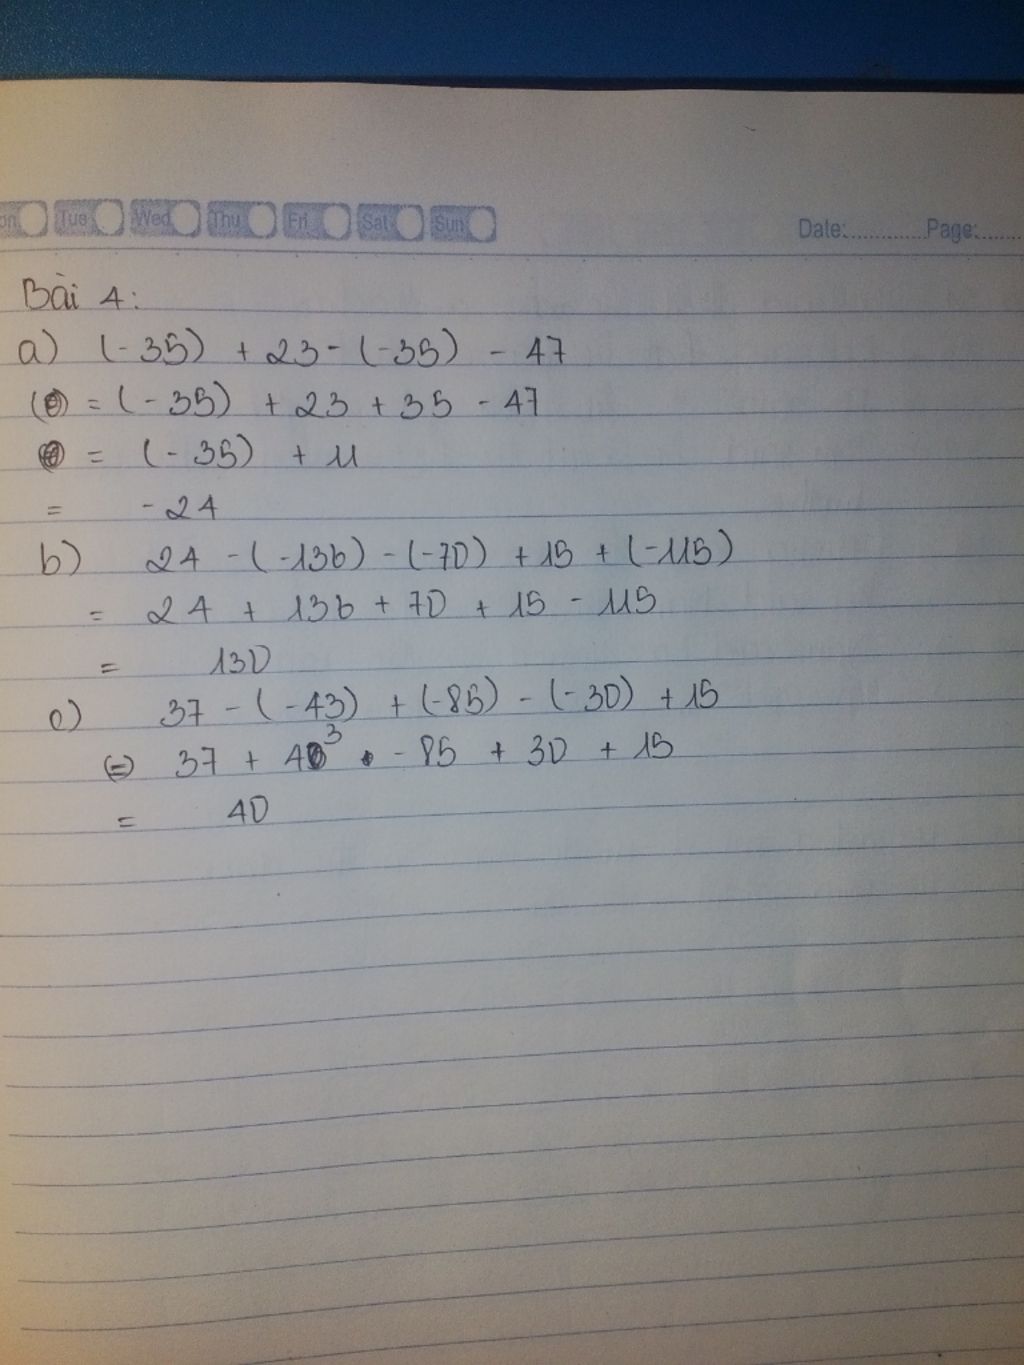 on Tue Wed Thu Fri Sat Sun Date:............Page:......
Bài 4:
a) (-35) + 23 - (-35) - 47
= (-35) + 23 + 35 - 47
= (-35) + 11
= -24
b) 24 - (-136) - (-70) + 15 + (-115)
= 24 + 136 + 70 + 15 - 115
= 130
c) 37 - (-43) + (-85) - (-30) + 15
(=) 37 + 43 - 85 + 30 + 15
= 40